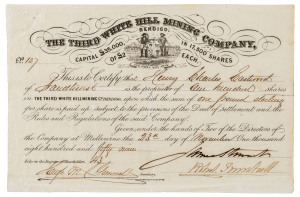 THE THIRD WHITE HILL MINING COMPANY,
BENDIGO.
CAPITAL £35,000, IN 17,500 SHARES
OF £2 EACH.
No. 107
This is to Certify that Henry Charles
of Sandhurst is the proprietor of One Hundred shares
IN THE THIRD WHITE HILL MINING COMPANY, BENDIGO, upon which the sum of one pound sterling
per share is paid up. Subject to the provisions of the Deed of Settlement and the
Rules and Regulations of the said Company.
Given, under the hands of Two of the Directors of
the Company at Melbourne the 23rd day of November One thousand
eight hundred and fifty nine